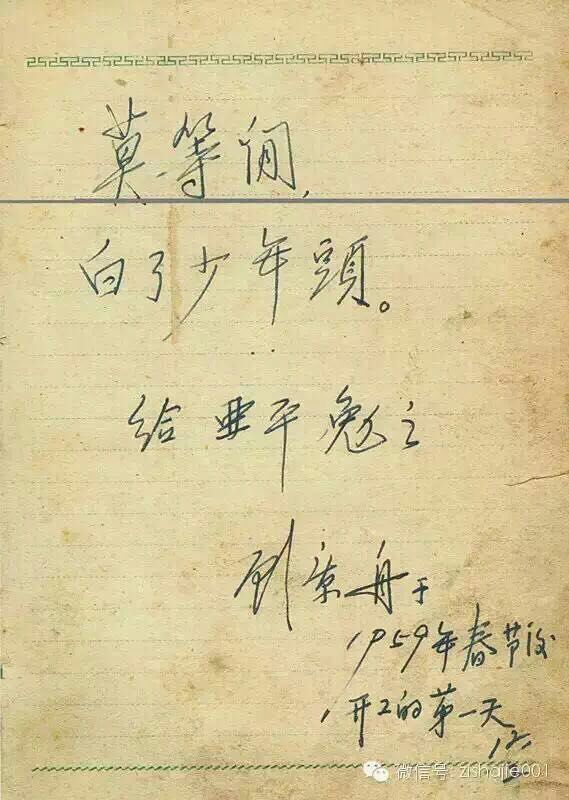 莫等閒,
白了少年頭。
给亚平勉之
顾景舟于
1959年春节后
开工的第一天
微信号: zishajie001